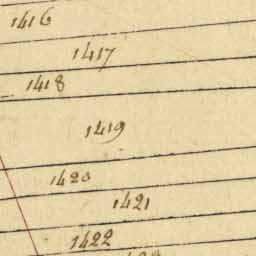 1416
1417
1418
1419
1420
1421
1422